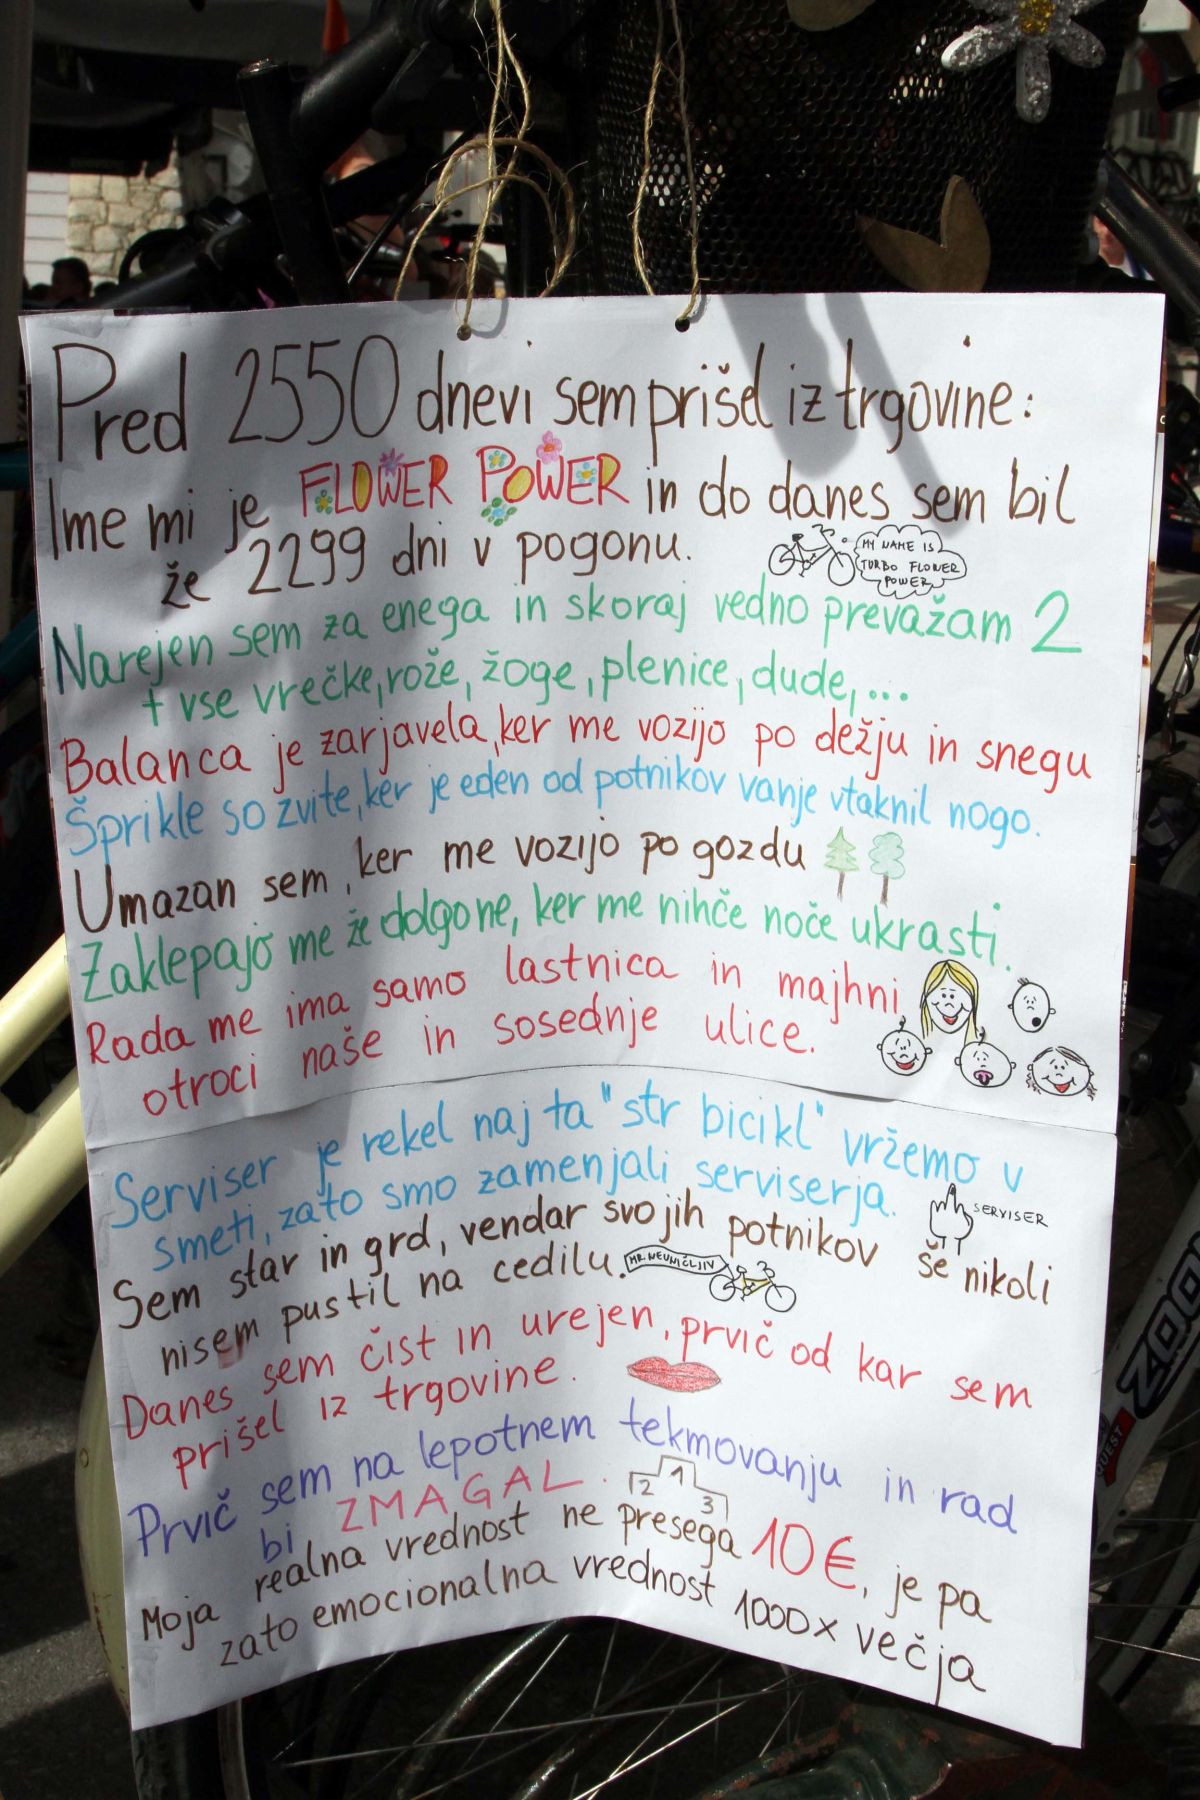 Pred 2550 dnevi sem prišel iz trgovine:
Ime mi je FLOWER POWER in do danes sem bil
že 2299 dni v pogonu.
MY NAME IS
TURBO FLOWER
POWER
Narejen sem za enega in skoraj vedno prevažam 2
+ vse vrečke, rože, žoge, plenice, dude,...
Balanca je zarjavela, ker me vozijo po dežju in snegu
Šprikle so zvite, ker je eden od potnikov vanje vtaknil nogo.
Umazan sem, ker me vozijo po gozdu
Zaklepajo me že dolgo ne, ker me nihče noče ukrasti.
Rada me ima samo lastnica in majhni
otroci naše in sosednje ulice.
Serviser je rekel naj ta "str bicikl" vržemo v
smeti, zato smo zamenjali serviserja.
SERVISER
Sem star in grd, vendar svojih potnikov še nikoli
nisem pustil na cedilu.
MR. NEUNIČLJIV
Danes sem čist in urejen, prvič od kar sem
prišel iz trgovine.
Prvič sem na lepotnem tekmovanju in rad
bi ZMAGAL.
2 1 3
Moja realna vrednost ne presega 10€, je pa
zato emocionalna vrednost 1000x večja
ZOOM
QUEST